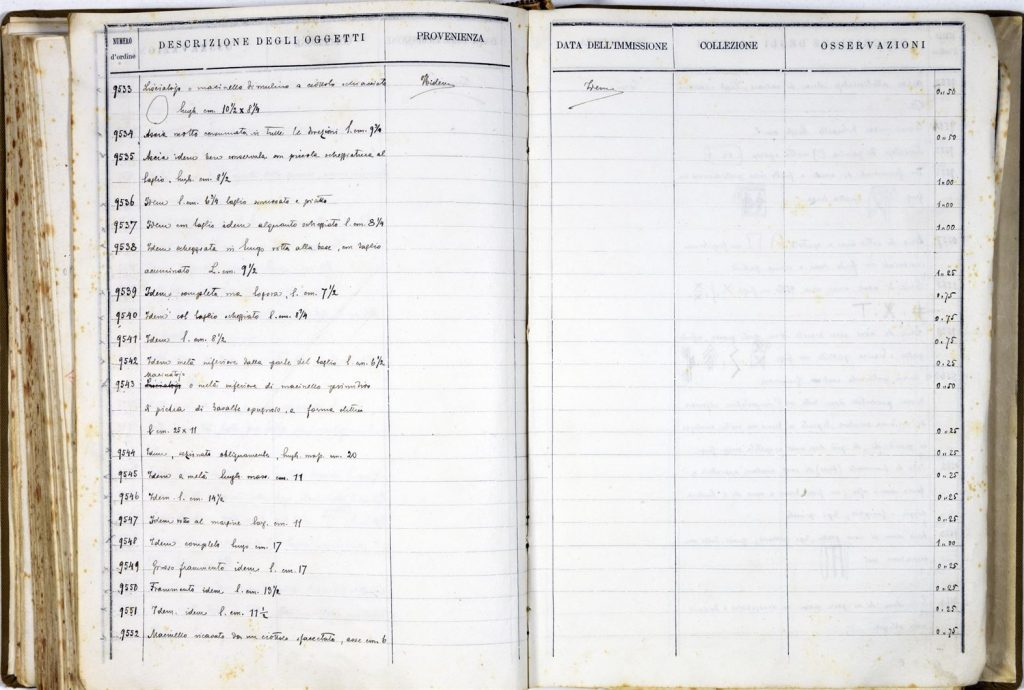 NUMERO d'ordine DESCRIZIONE DEGLI OGGETTI PROVENIENZA DATA DELL'IMMISSIONE COLLEZIONE OSSERVAZIONI
9533 Lisciatojo o macinello di mulino a ciottolo schiacciato Idem 0=50
lugh. cm. 10 1/2 x 8 3/4
9534 Ascia molto consumata in tutte le direzioni l. cm. 9 3/4 0=50
9535 Ascia idem ben conservata con piccola scheggiatura al
taglio, lugh. cm. 8 1/2 1=00
9536 Idem l. cm. 6 3/4 taglio smussato e piatto 1=00
9537 Idem con taglio idem alquanto scheggiato l. cm. 8 3/4 1=00
9538 Idem scheggiata in lungo rotta alla base, con taglio
acuminato L. cm. 9 1/2 1=25
9539 Idem, completa ma logora, l. cm. 7 1/2 0=75
9540 Idem col taglio scheggiato l. cm. 8 3/4 0=75
9541 Idem l. cm. 8 1/2 0=75
9542 Idem metà inferiore dalla parte del taglio l. cm. 6 1/2 0=25
Macinatojo
9543 Lisciatojo o metà inferiore di macinello 0=50
di pietra di basalte spugnoso, a forma
l. cm. 25 x 11 0=25
9544 Idem, sezionato obliquamente, lugh. cm. 20 0=25
9545 Idem a metà lugh. mass. cm. 11 0=25
9546 Idem l. cm. 14 1/2 0=25
9547 Idem rotto al margine cm. 11 0=25
9548 Idem completo lugh. cm. 17 1=00
9549 Grosso frammento idem l. cm. 17 0=25
9550 Frammento idem l. cm. 13 1/2 0=25
9551 Idem. idem l. cm. 11 1/2 0=25
9552 Macinello ricavato da un ciottolo sfaccettato, asse cm. 6 0=75